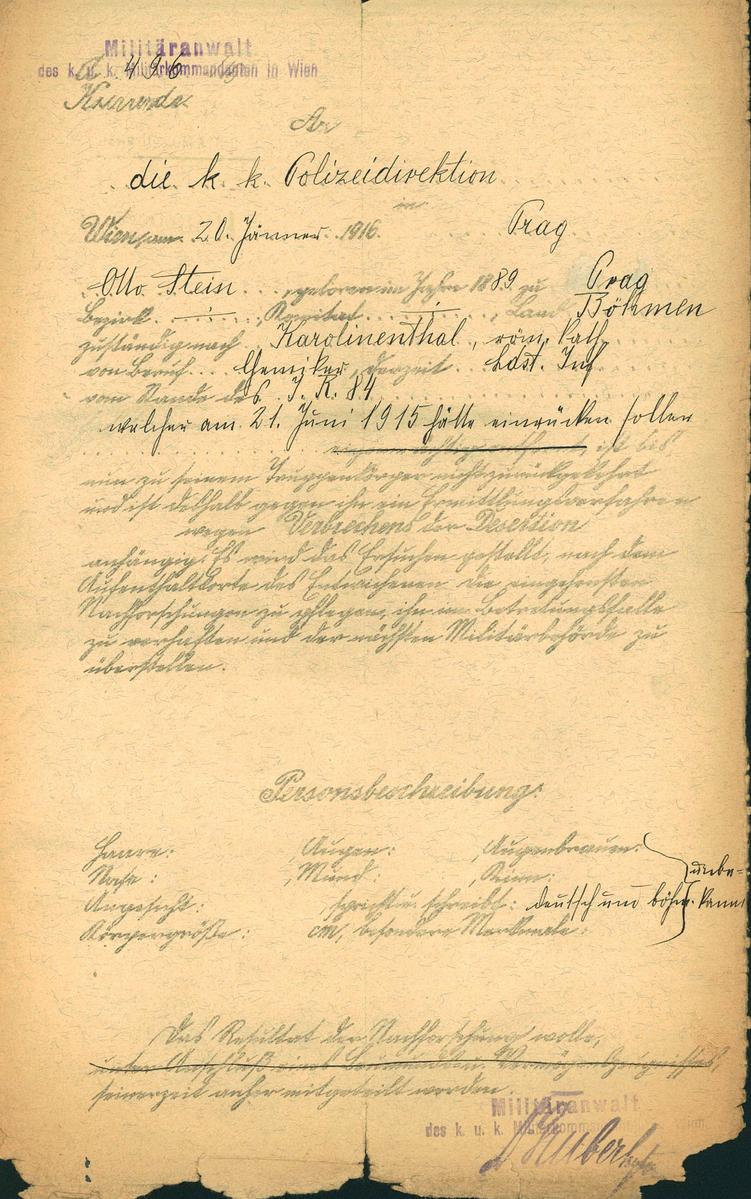 Militäranwalt
des k. u. k. Militärkommandanten in Wien
A 496
Kurrende
An
die k. k. Polizeidirektion
in
Wien, am 20. Jänner 1916. Prag
Otto Stein, geboren im Jahre 1889 zu Prag
Bezirk, Land Böhmen
zuständig nach Karolinenthal, röm. kath.
von Beruf Chemiker, derzeit Ldst. Inf.
vom Stande des I. R. 84
welcher am 21. Juni 1915 hätte einrücken sollen
ist bis
nun zu seinem Truppenkörper nicht zurückgekehrt
und ist deshalb gegen ihn ein Ermittlungsverfahren
wegen Verbrechens der Desertion
anhängig. Es wird das Ersuchen gestellt, nach dem
Aufenthaltsorte des Entwichenen die eingehendsten
Nachforschungen zu pflegen, ihn im Betretungsfalle
zu verhaften und der nächsten Militärbehörde zu
überstellen.
Personsbeschreibung:
Haare: , Augen: , Augenbrauen:
Nase: , Mund: , Kinn: unbe-
Angesicht: , spricht u. schreibt: deutsch und böhm. kannt
Körpergröße: cm, besondere Merkmale:
Das Resultat der Nachforschung wolle,
unter Anschluß eines Leumunds u. Vermögenszeugnisses,
seinerzeit anher mitgeteilt werden.
Militäranwalt
des k. u. k. Militärkomm